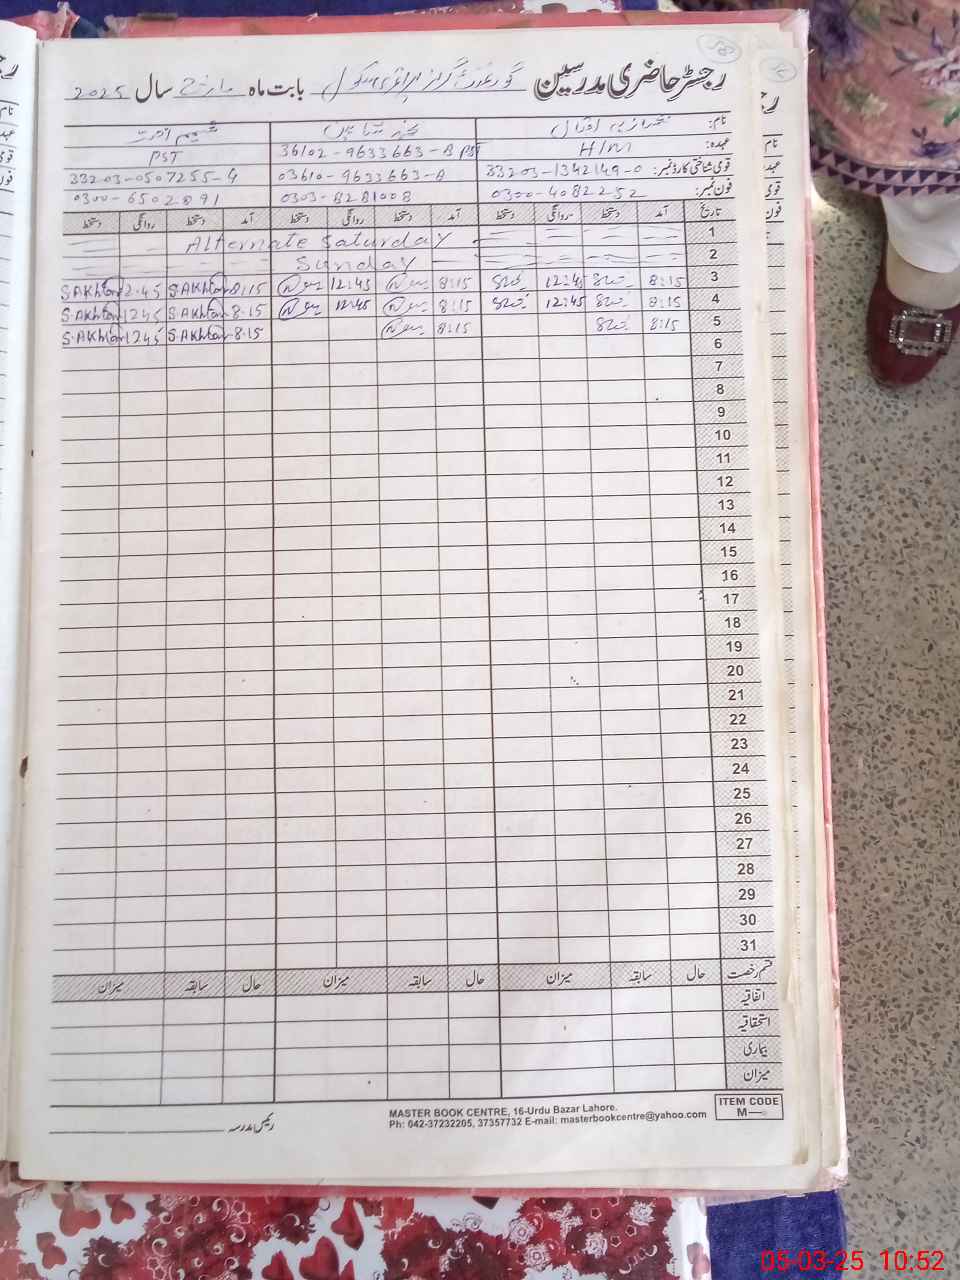 رجسٹر حاضری مدرسین گورنمنٹ گرلز پرائمری سکول بابت ماہ مارچ سال 2025
نام: اقبال شمیم اختر
عہدہ: H/M 36102-9633663-8 PST PST
قومی شناختی کارڈ نمبر: 33203-1342149-0 03610-9633663-8 33203-0507255-4
فون نمبر: 0300-4082252 0303-8281008 0300-6502891
تاریخ آمد دستخط روانگی دستخط آمد دستخط روانگی دستخط آمد دستخط روانگی دستخط
1 Alternate Saturday
2 Sunday
3 8:15 12:45 8:15 12:45 8:15 S.Akhtar 12:45 S.Akhtar
4 8:15 12:45 8:15 12:45 8.15 S.Akhtar 1245 S.Akhtar
5 8:15 8:15 8.15 S.Akhtar 1245 S.Akhtar
6
7
8
9
10
11
12
13
14
15
16
17
18
19
20
21
22
23
24
25
26
27
28
29
30
31
قسم رخصت حال سابقہ میزان حال سابقہ میزان حال سابقہ میزان
اتفاقیہ
استحقاقیہ
بیماری
میزان
ITEM CODE
M—
MASTER BOOK CENTRE, 16-Urdu Bazar Lahore.
Ph: 042-37232205, 37357732 E-mail: masterbookcentre@yahoo.com
رئیس مدرسہ
05-03-25 10:52